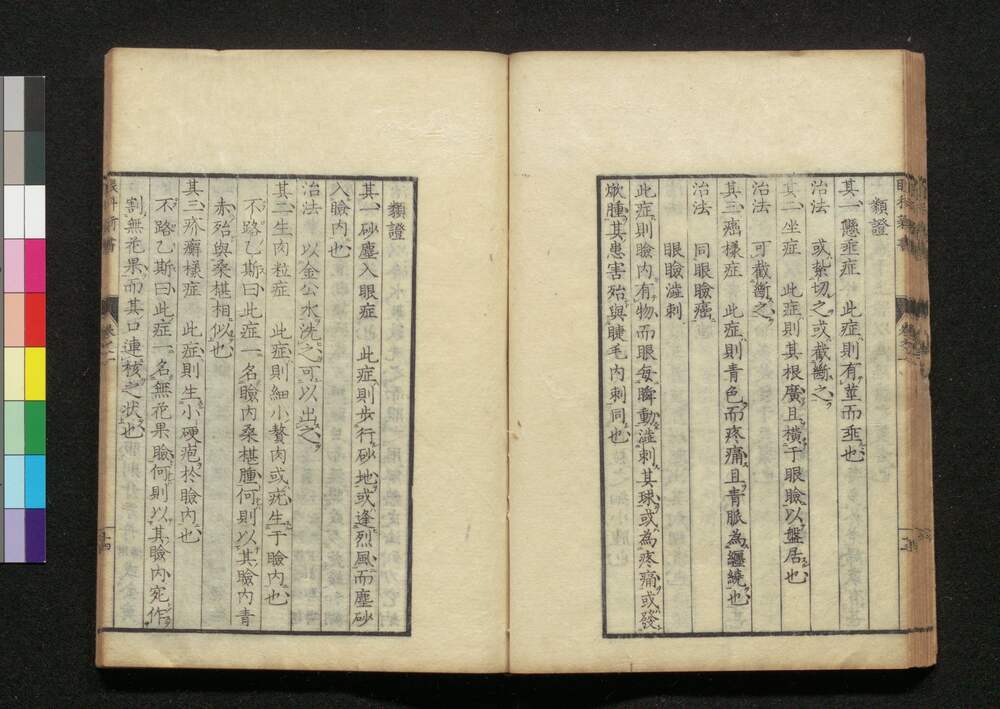 類證
其一懸垂症 此症則有莖而垂也
治法 或紮切之或截斷之
其二坐症 此症則其根廣且横于眼瞼以盤居也
治法 可截斷之
其三癌樣症 此症則青色而疼痛且青脈為纏繞也
治法 同眼瞼癌
眼瞼澁刺
此症則瞼內有物而眼每瞬動澁刺其球或為疼痛或發
焮腫其患害殆與睫毛內刺同也
類證
其一砂塵入眼症 此症則步行砂地或逢烈風而塵砂
入瞼內也
治法 以金公水洗之可以出之
其二生肉粒症 此症則細小贅肉或疣生于瞼內也
不路乙斯曰此症一名瞼內桑椹腫何則以其瞼內青
赤殆與桑椹相似也
其三疥癬樣症 此症則生小硬疱於瞼內也
不路乙斯曰此症一名無花果瞼何則以其瞼內宛作
割無花果而其口連核之狀也